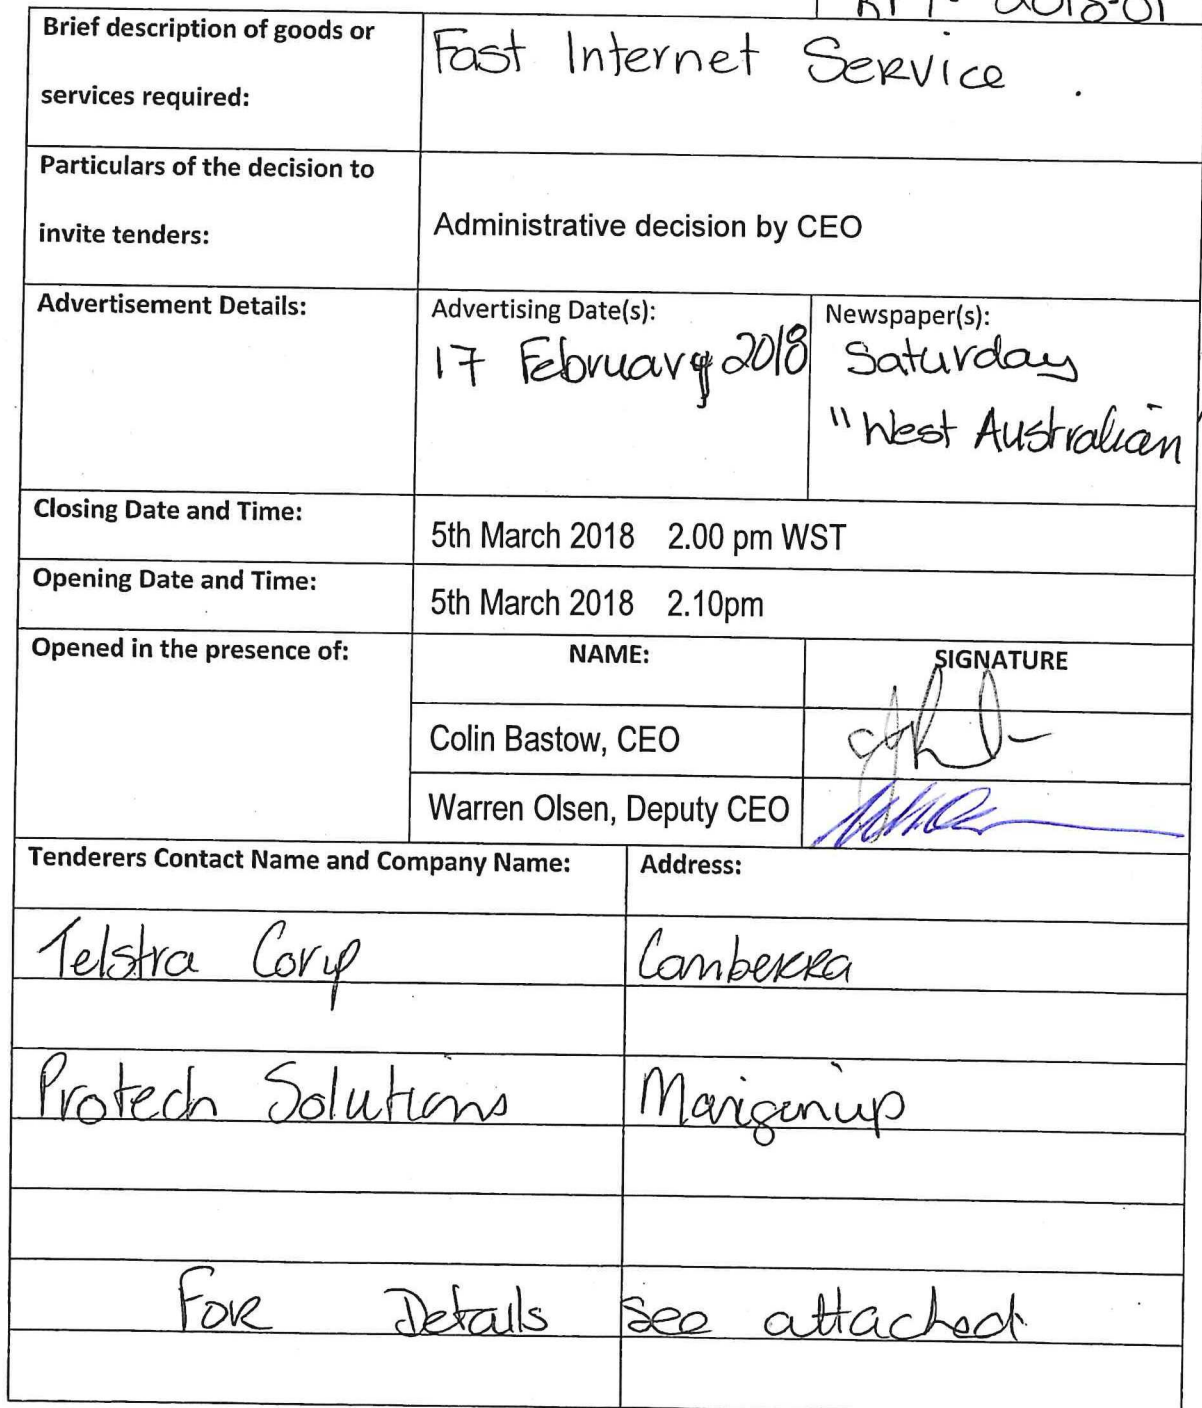 2018-01
Brief description of goods or
services required:
Fast Internet Service .
Particulars of the decision to
invite tenders:
Administrative decision by CEO
Advertisement Details:
Advertising Date(s):
17 February 2018
Newspaper(s):
Saturday
"West Australian"
Closing Date and Time:
5th March 2018 2.00 pm WST
Opening Date and Time:
5th March 2018 2.10pm
Opened in the presence of:
NAME:
SIGNATURE
Colin Bastow, CEO
Warren Olsen, Deputy CEO
Tenderers Contact Name and Company Name:
Address:
Telstra Corp
Canberra
Protech Solutions
Mariginup
For Details see attached